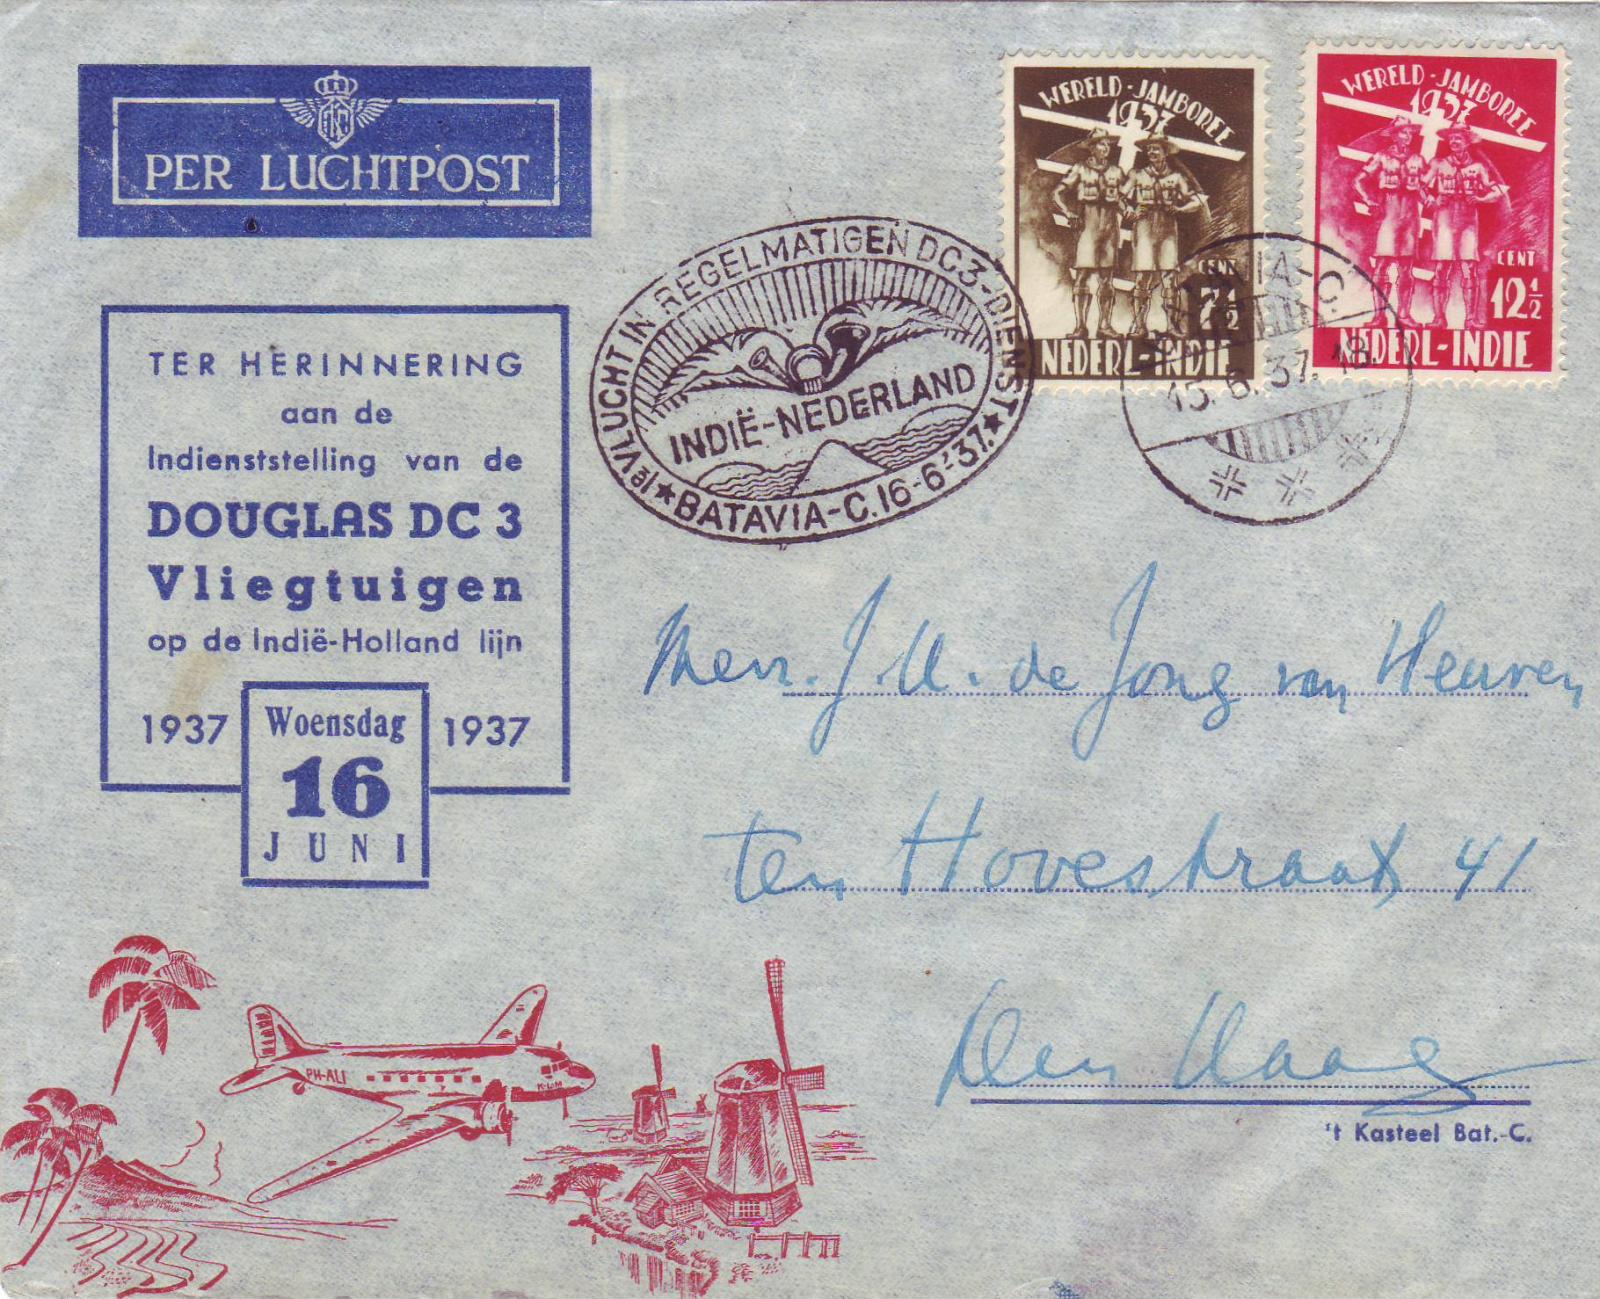 PER LUCHTPOST
TER HERINNERING
aan de
Indienststelling van de
DOUGLAS DC 3
Vliegtuigen
op de Indië-Holland lijn
1937 Woensdag 1937
16
JUNI
1e VLUCHT IN REGELMATIGEN DC3-DIENST
INDIË-NEDERLAND
★ BATAVIA-C. 16-6-'37. ★
WERELD-JAMBOREE
1937
CENT
7½
NEDERL-INDIE
WERELD-JAMBOREE
1937
CENT
12½
NEDERL-INDIE
BATAVIA-C.
15.6.37.18.
de Jong van Heuven
ten Hovestraat 41
Den Haag
't Kasteel Bat.-C.
PH-ALI
K·L·M